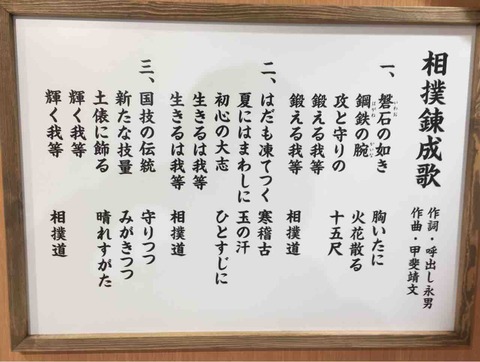 相撲錬成歌
作詞・呼出し永男
作曲・甲斐靖文
一、磐石の如き 胸いたに
鋼鉄の腕 火花散る
攻と守りの 十五尺
鍛える我等
鍛える我等 相撲道
二、はだも凍てつく 寒稽古
夏にはまわしに 玉の汗
初心の大志 ひとすじに
生きるは我等
生きるは我等 相撲道
三、国技の伝統 守りつつ
新たな技量 みがきつつ
土俵に飾る 晴れすがた
輝く我等
輝く我等 相撲道